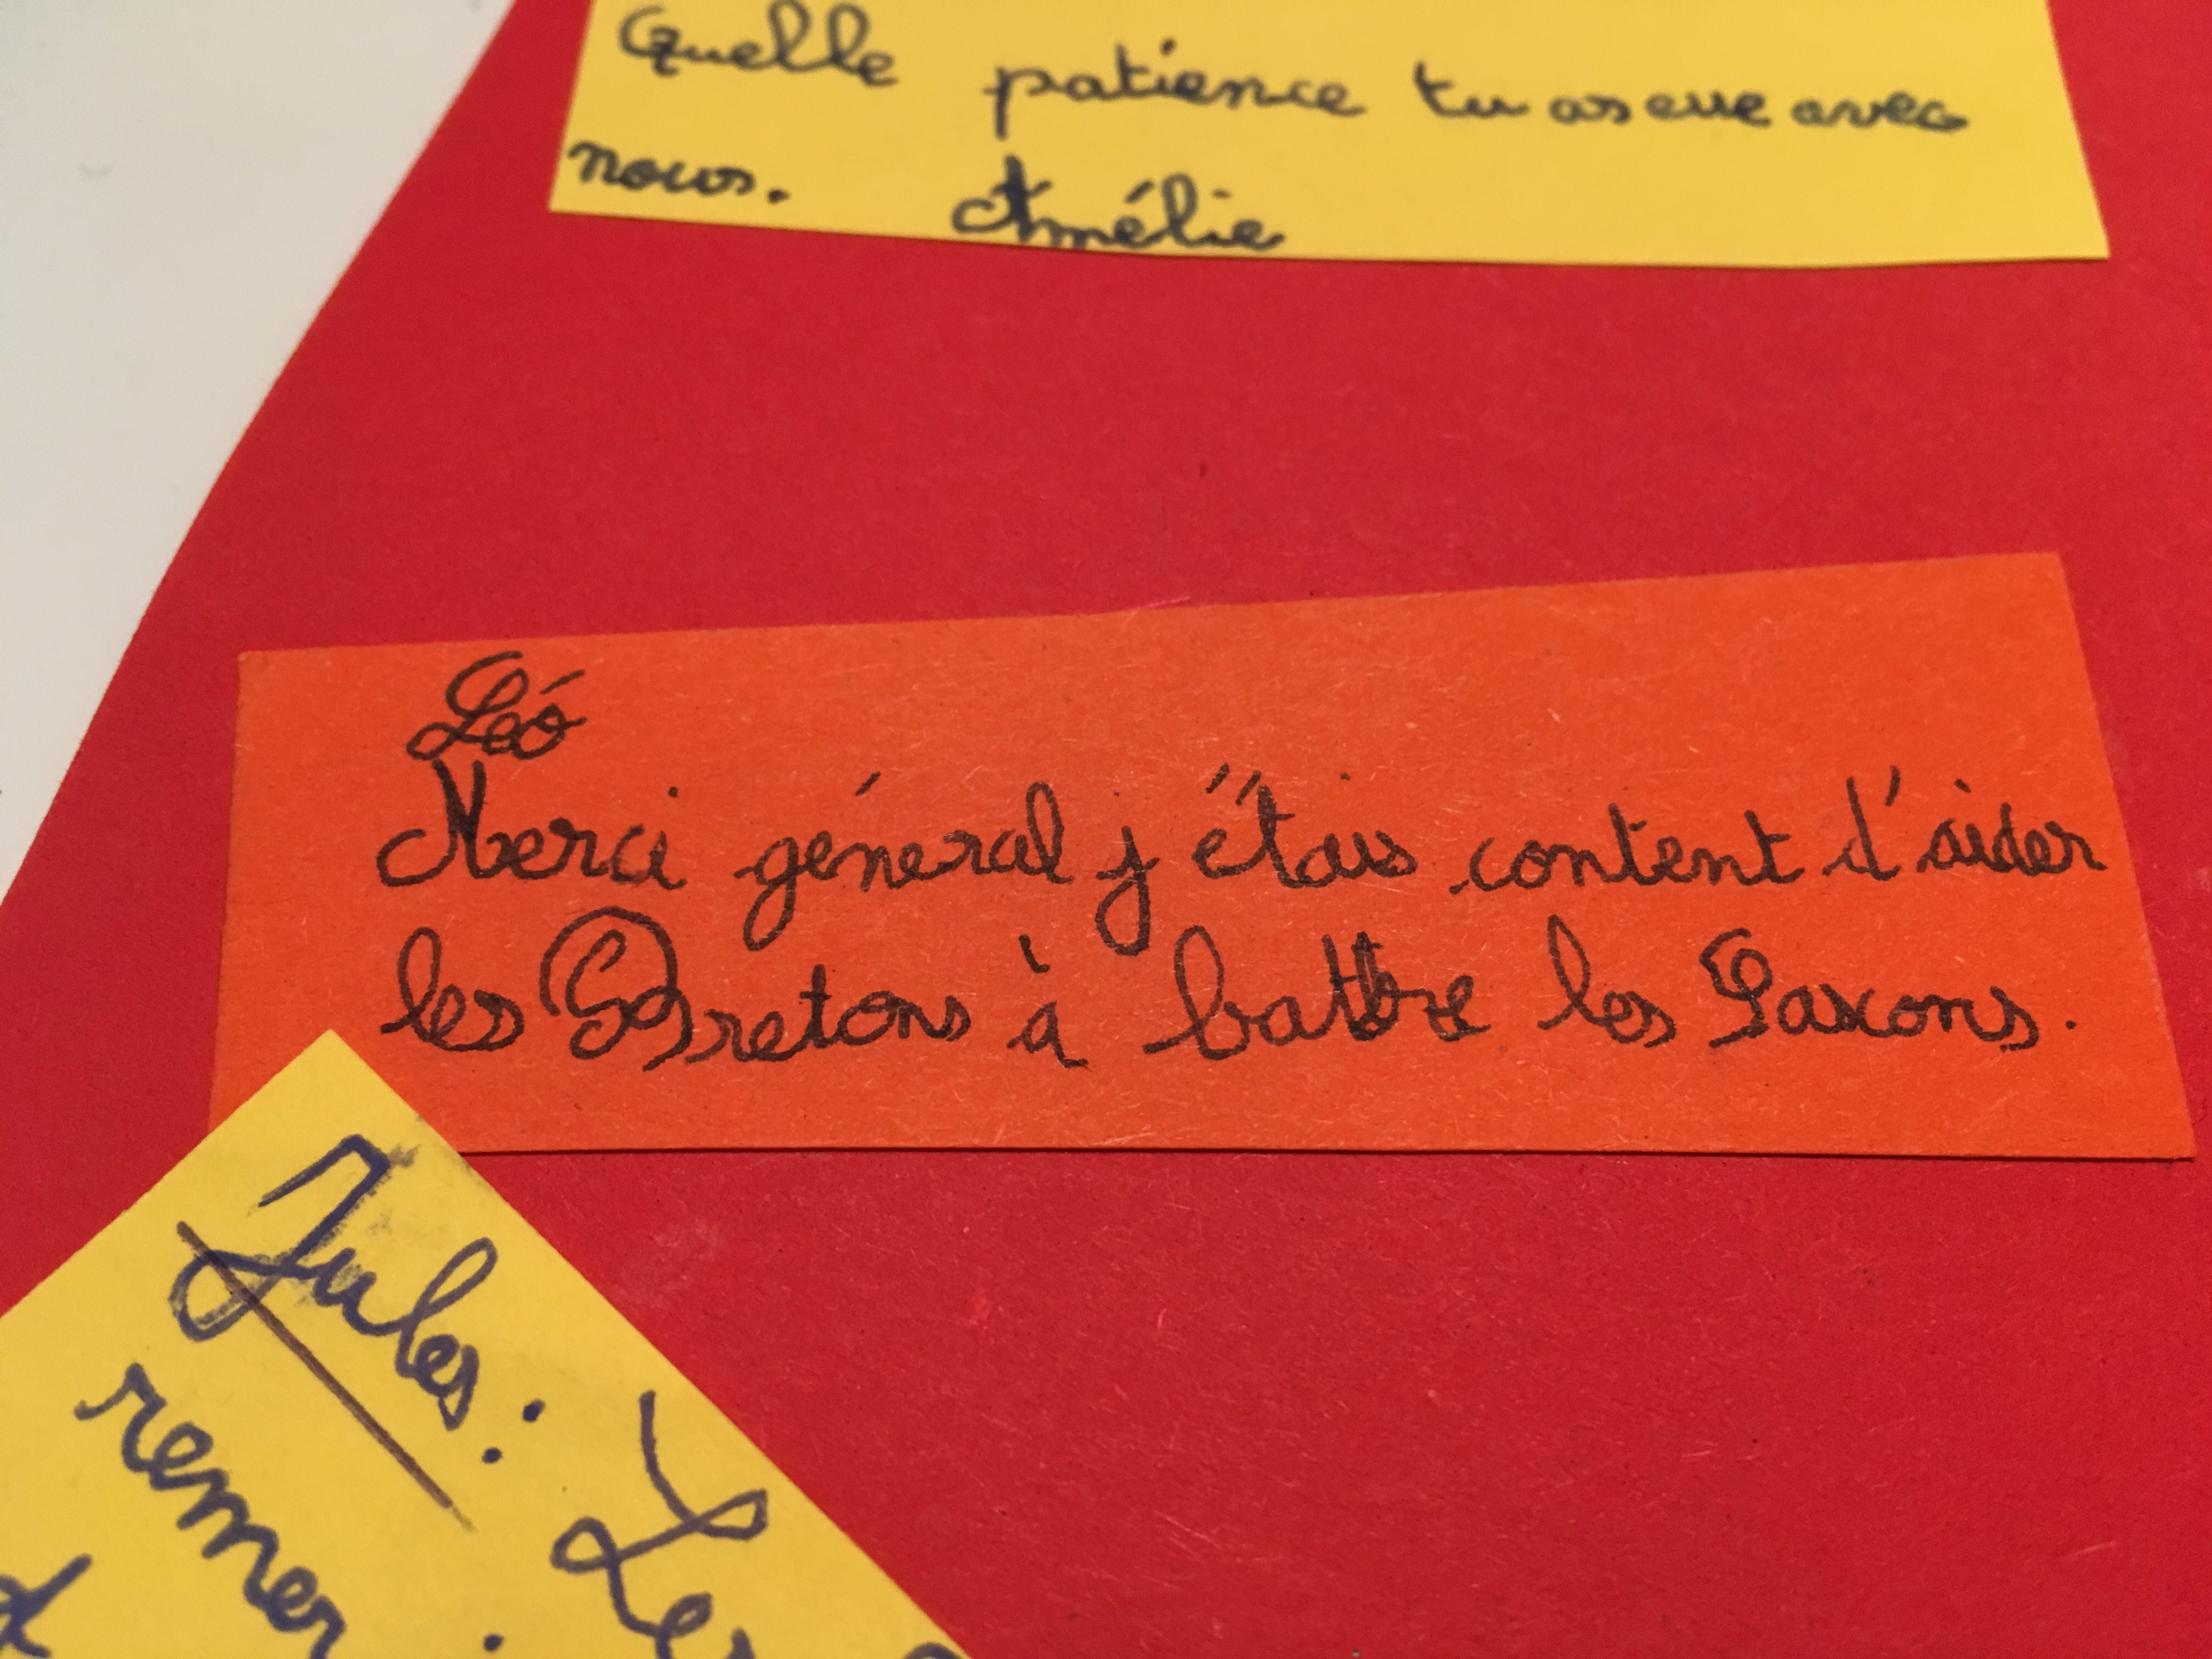 Quelle patience tu as eue avec
nous. Amélie
Léo
Merci général j'étais content d'aider
les Bretons à battre les Saxons.
Jules: Les
remer